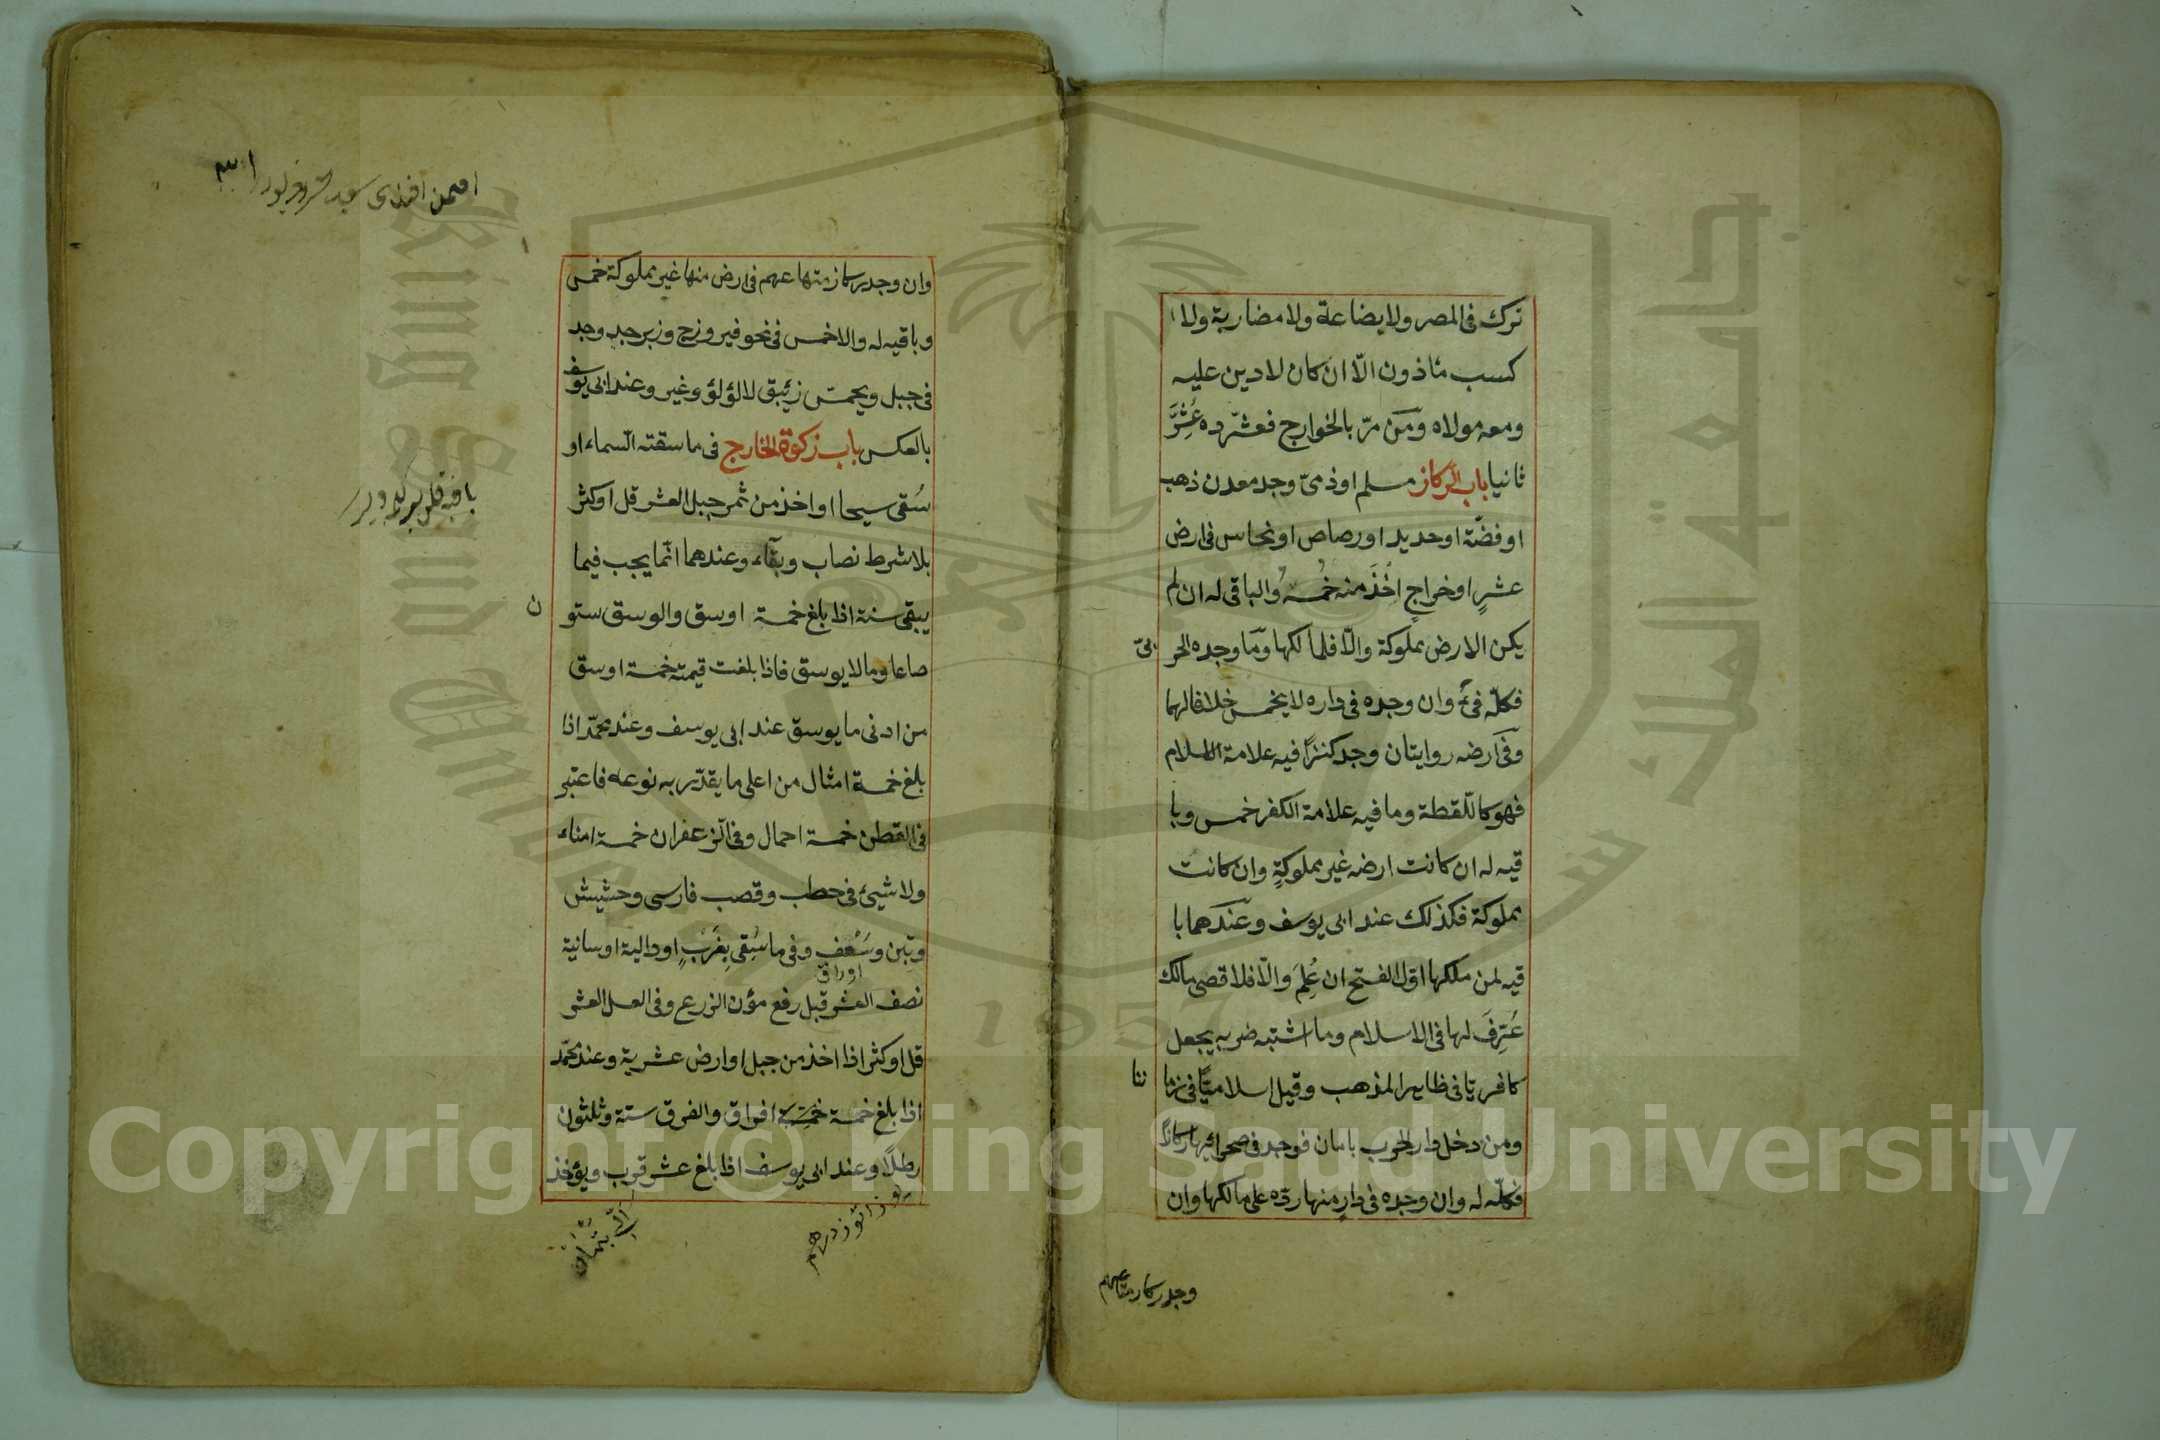 ترك فى المصر ولا بضاعة ولا مضاربة ولا
كسب مأذون الّا ان كان لا دين عليه
ومعه مولاه ومن مرّ بالخوارج فعشّروه عُشِّرَ
ثانيا باب الركاز مسلم او ذمىّ وجد معدن ذهب
او فضّة او حديد او رصاص او نحاس فى ارض
عشرٍ او خراجٍ اُخِذَ منه خُمسُه والباقى له ان لم
يكن الارض مملوكة والّا فلمالكها وما وجده الحر
بىّ
فكلّه فىء وان وجده فى داره لا يخمس خلافا لهما
وفى ارضه روايتان وجد كنزًا فيه علامة الاسلام
فهو كاللّقطة وما فيه علامة الكفر خمس وبا
قيه له ان كانت ارضه غير مملوكةٍ وان كانت
مملوكة فكذلك عند ابى يوسف وعندهما با
قيه لمن ملكها اول الفتح ان عُلِمَ والّا فلاقصى مالك
عُرِفَ لها فى الاسلام وما اشتبه ضربه يجعل
كافريّا فى ظاهر المذهب وقيل اسلاميّا فى زما
ننا
ومن دخل دار الحرب بامان فوجد فى صحرائها ركازًا
فكلّه له وان وجده فى دارٍ منها ردّه على مالكها وان
وجد ركاز متاعهم
وان وجد ركاز متاعهم فى ارض منها غير مملوكة خمس
وباقيه له ولا خمس فى نحو فيروزج وزبرجد وجد
فى جبل ويخمس زئبق لا لؤلؤ وعنبر وعند ابى يوسف
بالعكس باب زكوة الخارج فى ما سقته السّماء او
سُقى سيحا او اخذ من ثمر جبل العشر قل او كثر
بلا شرط نصاب وبقاء وعندهما انّما يجب فيما
يبقى سنة اذا بلغ خمسة اوسق والوسق ستو
ن
صاعا وما لا يوسق فاذا بلغت قيمته خمسة اوسق
من ادنى ما يوسق عند ابى يوسف وعند محمّد اذا
بلغ خمسة امثال من اعلى ما يقدّر به نوعه فاعتبر
فى القطن خمسة احمال وفى الزعفران خمسة امناء
ولا شيئ فى حطب وقصب فارسى وحشيش
وتبن وسَعَف وفى ما سُقِى بِغَرْبٍ او دالية او سانية
اوراق
نصف العشر قبل رفع مؤن الزرع وفى العسل العشر
قل او كثر اذا اخذ من جبل او ارض عشرية وعند محمّد
اذا بلغ خمسة خمسة افراق والفرق ستة وثلثون
رطلًا وعند ابى يوسف اذا بلغ عشر قرب ويؤخذ
Copyright © King Saud University
جامعة الملك سعود
King Saud University
1957